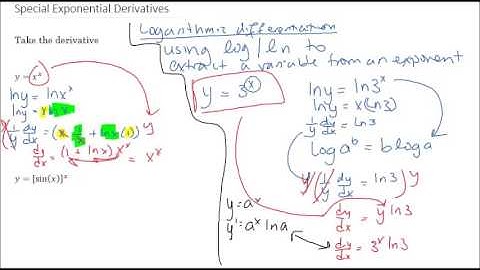 Special Exponential Derivatives
Take the derivative
y = x^x
lny = lnx^x
lny = x lnx
y(1/y dy/dx = (x · 1/x + lnx(1)) y
dy/dx = (1 + lnx) x^x = x^x
y = [sin(x)]^x
Logarithmic differentiation
using log/ln to
extract a variable from an exponent
y = 3^x
lny = ln3^x
lny = x(ln3)
1/y dy/dx = ln3
log a^b = b log a
y(1/y dy/dx = ln3) y
dy/dx = y ln3
dy/dx = 3^x ln3
y = a^x
y' = a^x lna